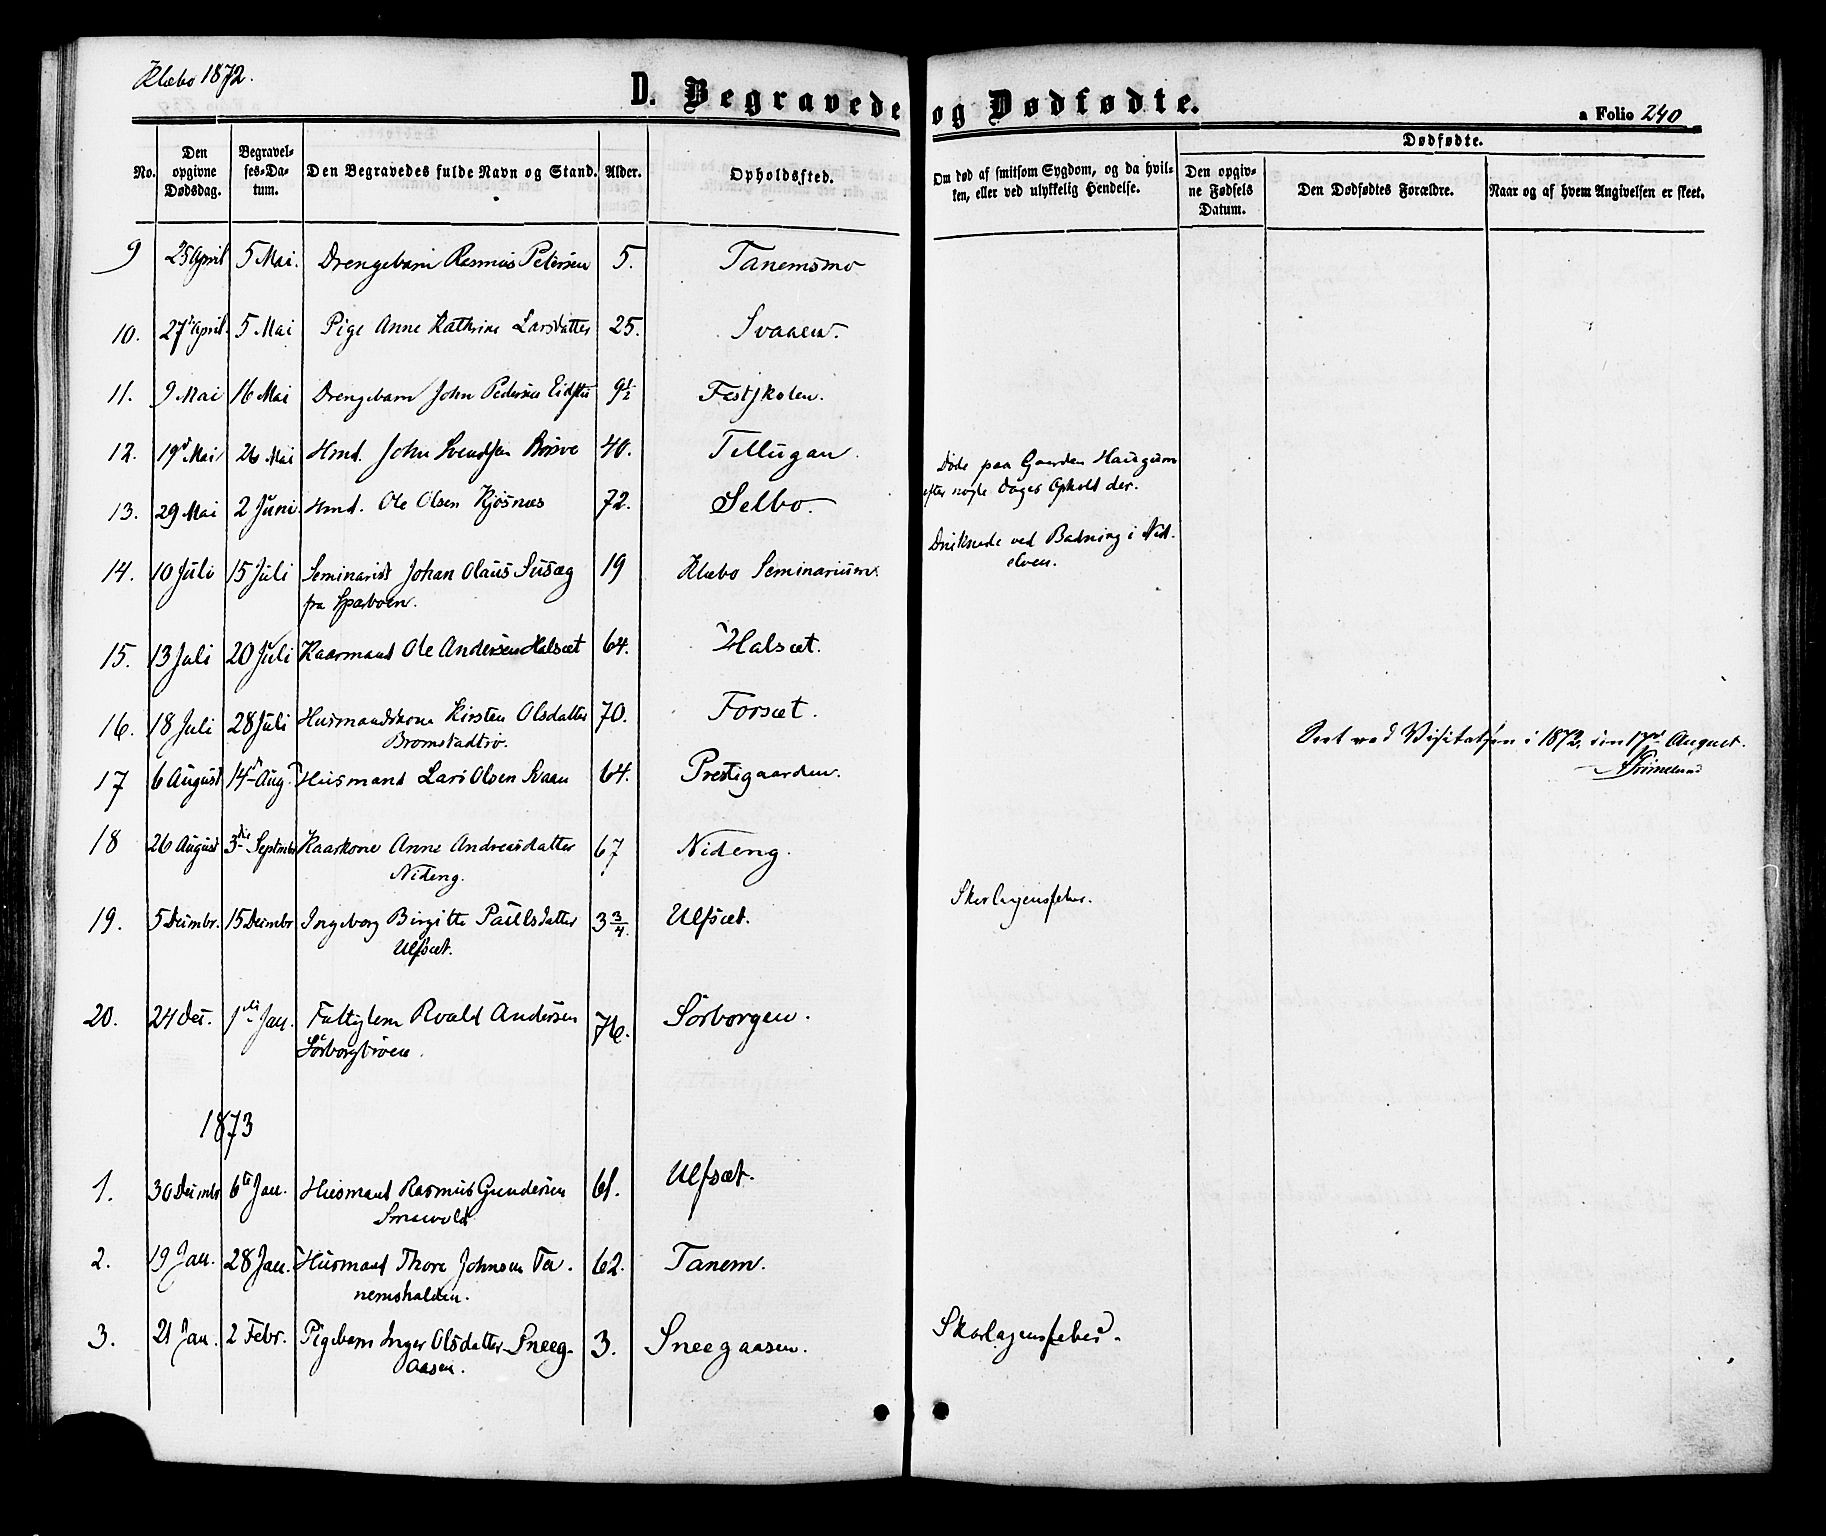 Klæbo 1872.
D. Begravede og Dødfødte.
a Folio 240
No.
Den opgivne Dødsdag.
Begravelses-Datum.
Den Begravedes fulde Navn og Stand.
Alder.
Opholdssted.
Om død af smitsom Sygdom, og da hvilken, eller ved ulykkelig Hendelse.
Dødfødte.
Den opgivne Fødsels Datum.
Den Dødfødtes Forældre.
Naar og af hvem Angivelsen er skeet.
9 25 April 5 Mai. Drengebarn Rasmus Petersen 5. Tanemsmo
10. 27 April. 5 Mai Pige Anne Kathrine Larsdatter 25. Svaaen.
11. 9 Mai 16 Mai Drengebarn John Pedersen 9½ Fastskolen.
12. 19 Mai 26 Mai Hmd. John Svendsen 40. Tillugan.
13. 29 Mai 2 Juni Hmd. Ole Olsen Kjösnæs 72. Selbo. Døde paa Gaarden Haugum
efter nogle Dages Ophold der.
14. 10 Juli 15 Juli Seminarist Johan Olaus Susæg 19 Klæbo Seminarium. Druknede ved Badning i Nid-
elven.
fra Sparboen.
15. 13 Juli 20 Juli Kaarmand Ole Andersen Halsæt 64. Halsæt.
16. 18 Juli 28 Juli Husmandskone Kirsten Olsdatter 70. Forsæt.
Bromstadtrø.
Seet ved Visitatsen i 1872, den 17de August.
Grimelund
17 6 August 14de Aug. Husmand Lars Olsen Svaan 64. Prestegaarden.
18 26 August 3die Septmbr Kaarkone Anne Andreasdatter 67 Nideng.
Nideng.
19. 5 Decmbr. 15 Decmbr Ingeborg Birgitte Paulsdatter 3¾. Ulfsæt. Skarlagensfeber.
Ulfsæt.
20. 24 Dec. 1ste Jan. Fattiglem Roald Andersen 76. Sörborgen.
Sörborgtröen.
1873
1. 30 Decmbr 6te Jan. Husmand Rasmus Gundersen 61. Ulfsæt.
2. 19 Jan. 28 Jan. Husmand Thore Johnsen Ta- 62. Tanem.
nemshalden.
3. 21 Jan. 2 Febr. Pigebarn Inger Olsdatter Sneeg- 3. Sneegaasen. Skarlagensfeber.
aasen.